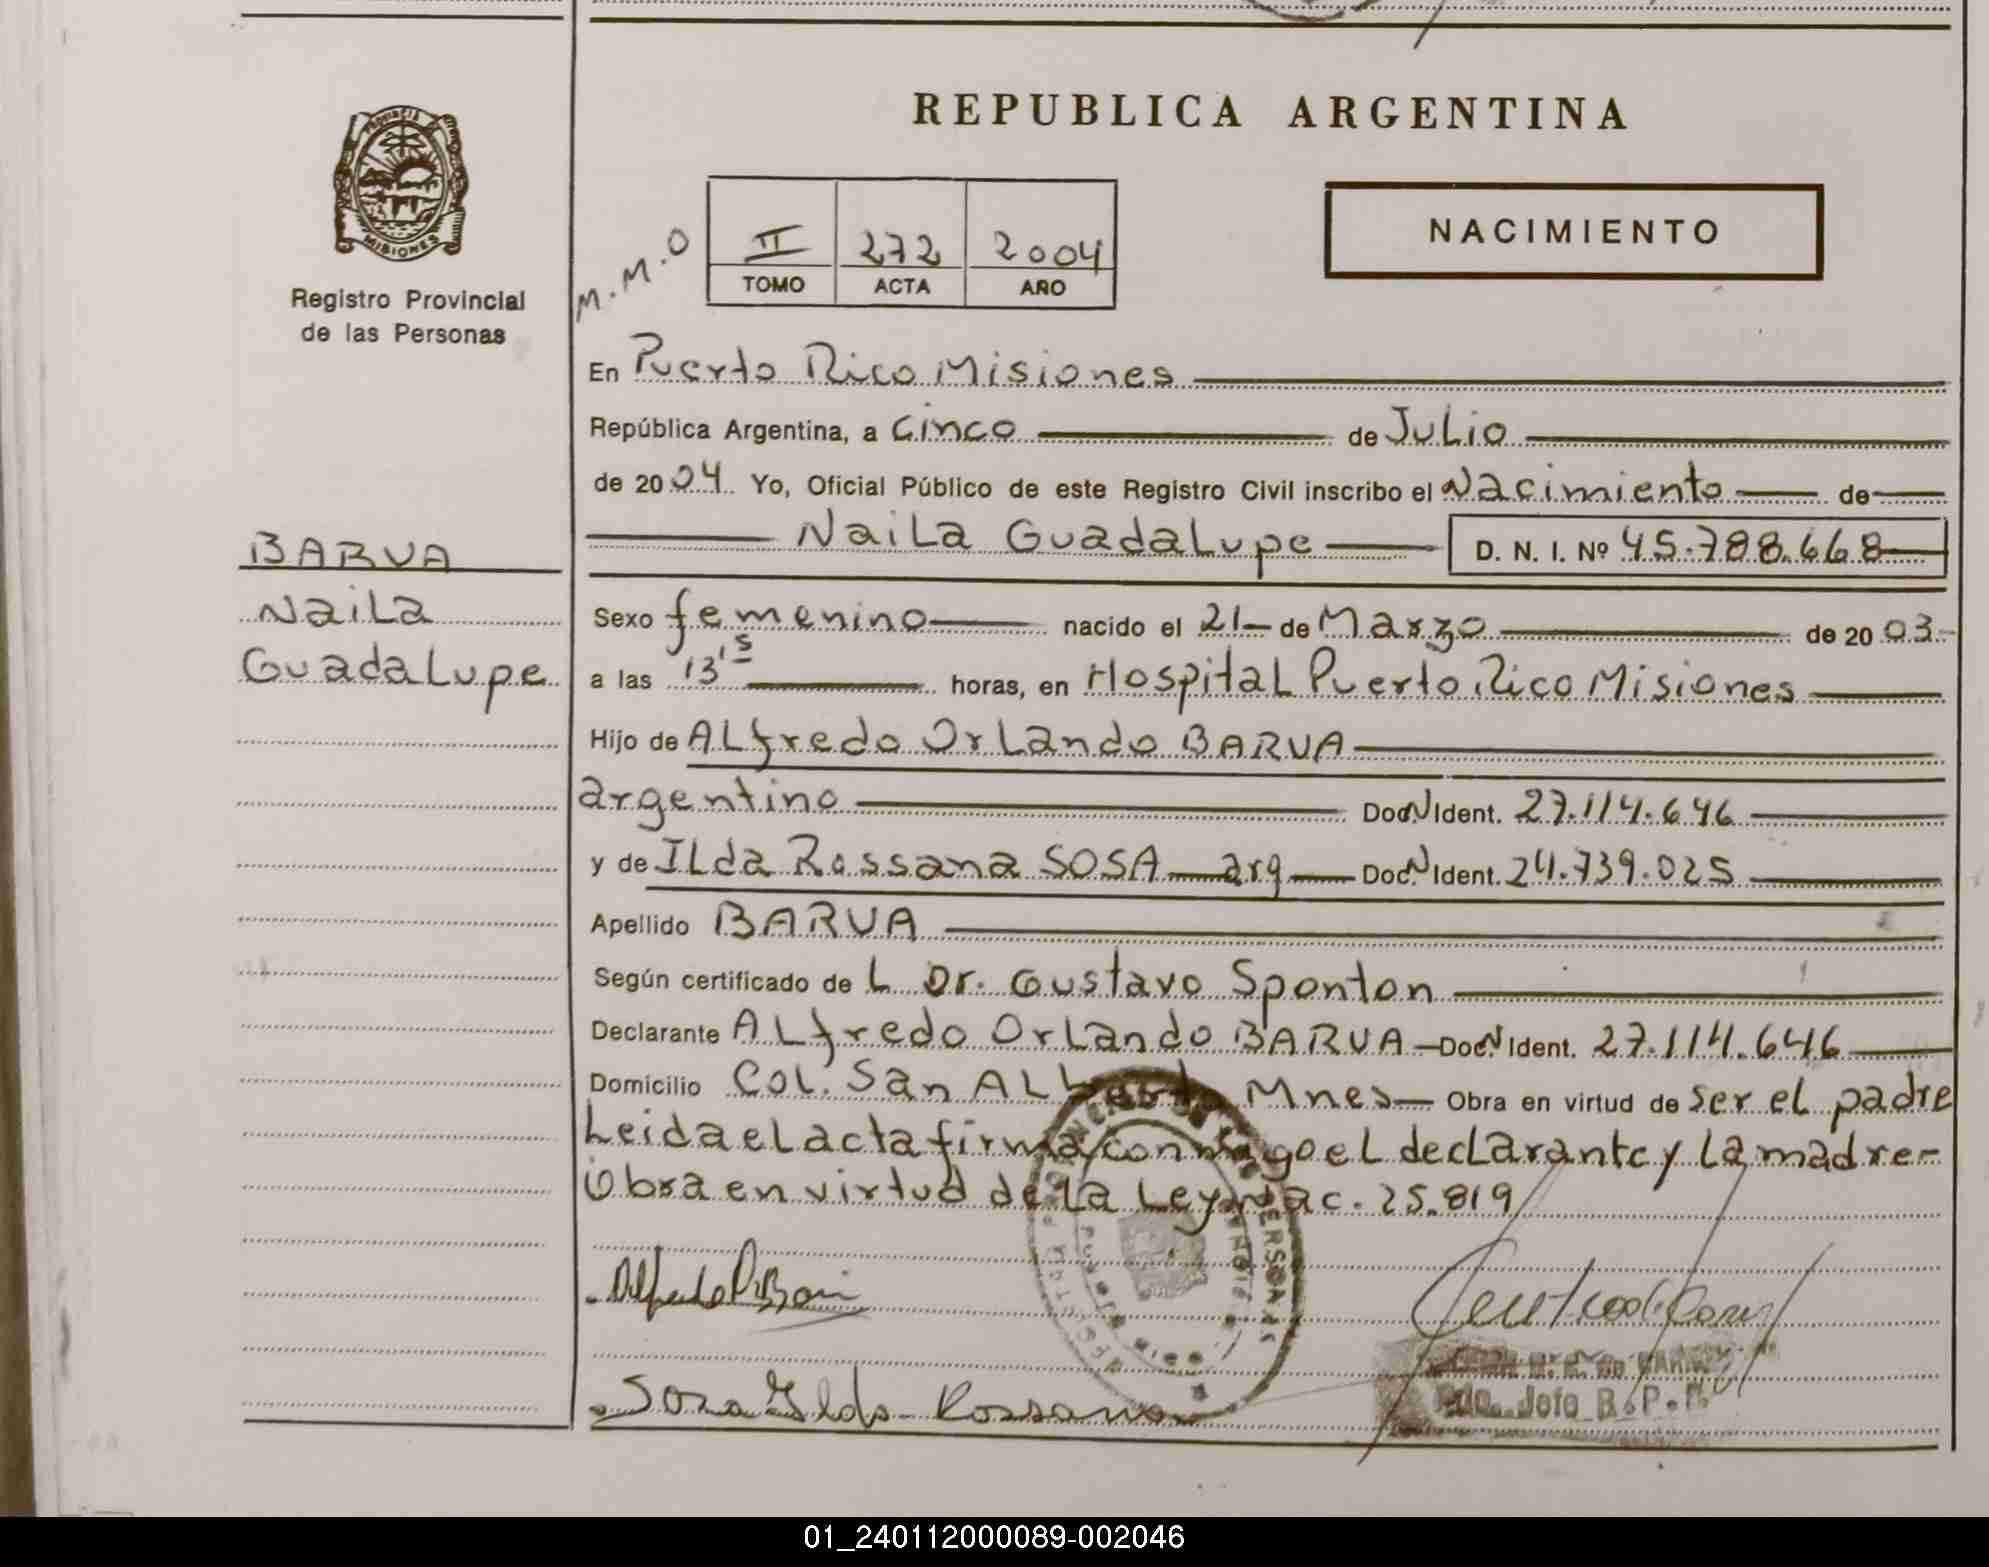 REPUBLICA ARGENTINA
PROVINCIA DE
MISIONES
Registro Provincial
de las Personas
M.M.O
II 272 2004
TOMO ACTA AÑO
NACIMIENTO
En Puerto Rico Misiones
República Argentina, a cinco de Julio
de 2004 Yo, Oficial Público de este Registro Civil inscribo el Nacimiento de
Naila Guadalupe D. N. I. Nº 45.788.668
BARUA
Naila
Guadalupe
Sexo femenino nacido el 21 de Marzo de 2003
a las 13'5 horas, en Hospital Puerto Rico Misiones
Hijo de Alfredo Orlando BARUA
argentino Doc. N Ident. 27.114.646
y de Ilda Rossana SOSA arg Doc. N Ident. 24.739.025
Apellido BARUA
Según certificado de L Dr. Gustavo Sponton
Declarante Alfredo Orlando BARUA Doc. N Ident. 27.114.646
Domicilio Col. San Alberto Mnes Obra en virtud de ser el padre
Leida el acta firma conmigo el declarante y la madre-
Obra en virtud de la Ley Nac. 25.819
Sosa Ilda Rossana
Jefe R.P.P.
01_240112000089-002046